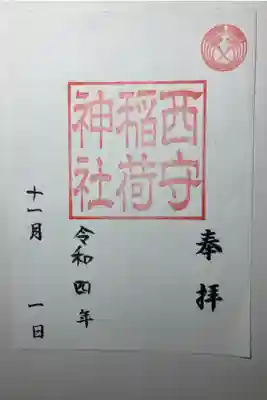 奉拝
西守
稲荷
神社
令和四年
十一月 一日